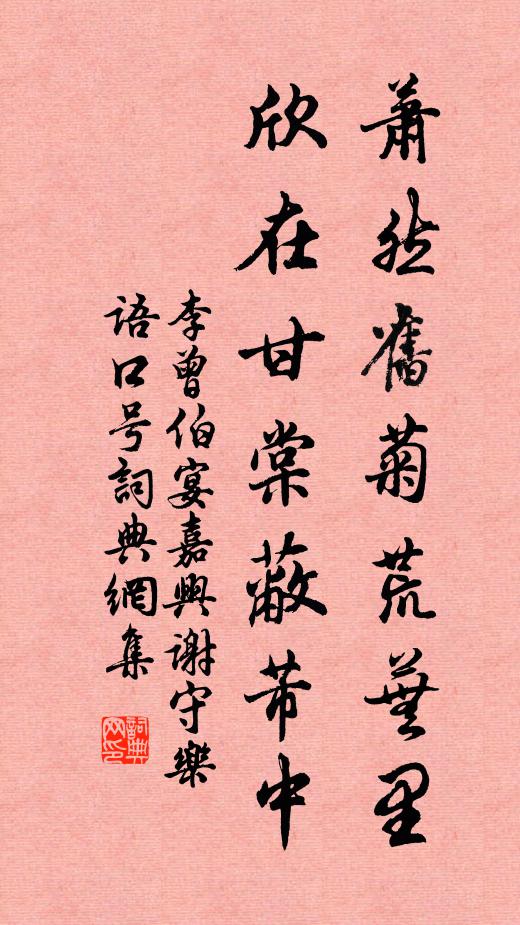 蕭然舊菊荒蕪里
欣在甘棠蔽芾中
李曾伯宴嘉興谢守樂
语口号詞典網集
詞典
网印